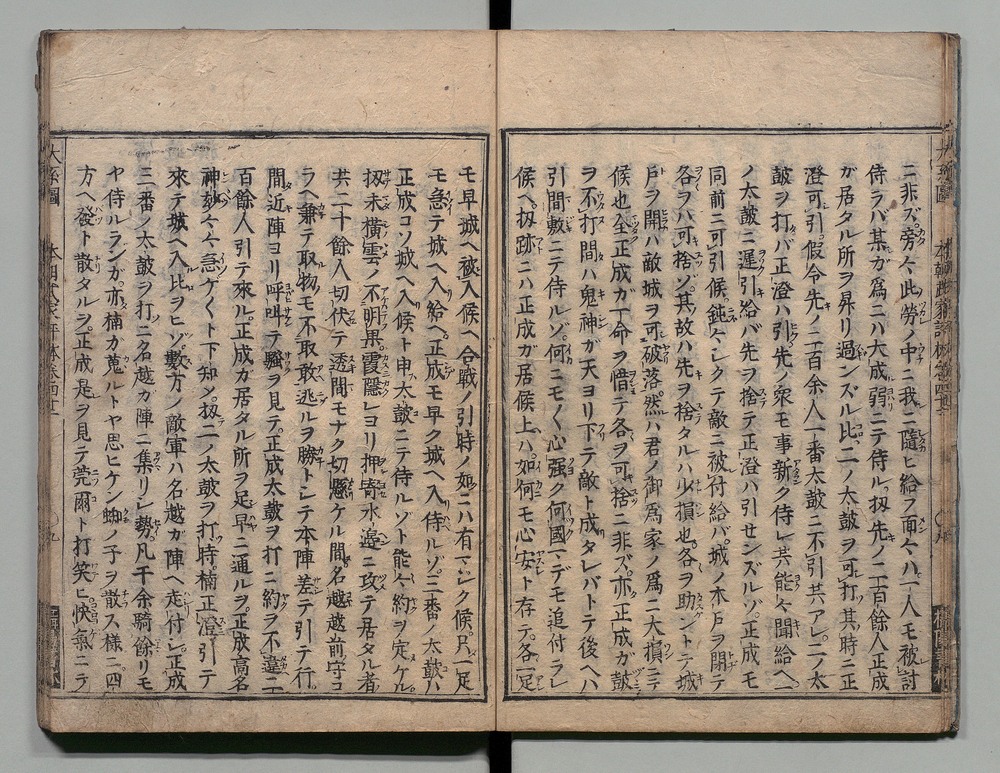 ニ非ズ旁々此勞ノ中ニ我ニ隨ヒ給フ面々ハ一人モ被討
侍ラバ某ガ爲ニハ大成弱ニテ侍ル扨先ノ二百餘人正成
ガ居タル所ヲ昇リ過ンズル比ニ二ノ太鼓ヲ可打其時ニ正
澄可引假令先ノ二百余人一番太鼓ニ不引共アレ二ノ太
鼓ヲ打バ正澄ハ引先ノ衆モ事新ク侍レ共能々聞給ヘ一
ノ太鼓ニ遲引給バ先ヲ捨テ正澄ハ引センズルゾ正成モ
同前ニ可引候鈍々シクテ敵ニ被付給バ城ノ木戸ヲ閉テ
各ヲハ可捨ゾ其故ハ先ヲ捨タルハ少損也各ヲ助ントテ城
戸ヲ開バ敵城ヲ可破落然ハ君ノ御爲家ノ爲ニ大損ニテ
候也全正成ガ一命ヲ惜テ各ヲ可捨ニ非ズ亦正成ガ鼓
ヲ不打間ハ鬼神ガ天ヨリ下テ敵ト成タレバトテ後ヘハ
引間敷ニテ侍ルゾ何ニモ心强ク何國マデモ追付ラレ
候ヘ扨跡ニハ正成ガ居候上ハ如何モ心安ト存テ各一足
モ早城ヘ被入候ヘ合戰ノ引時ノ如ニハ有マシク候只一足
モ急テ城ヘ入給ヘ正成モ早ク城ヘ入侍ルゾ三番ノ太鼓ハ
正成コソ城ヘ入候ト申太鼓ニテ侍ルゾト能々約ヲ定ケル
扨未橫雲ノ不明果霞隱レヨリ押寄水邊ニ攻テ居タル者
共二十餘人切伏テ透間モナク切懸ケル間名越越前守コ
ラヘ兼テ取物モ不取敢逃ルヲ勝トシテ本陣差テ引テ行
間近陣ヨリ呼叫テ騷ヲ見テ正成太鼓ヲ打ニ約ヲ不違二
百餘人引テ來ル正成ガ居タル所ヲ足早ニ通ルヲ正成高名
神妙々々急ゲト下知ノ扨二ノ太鼓ヲ打時楠正澄引テ
來テ城ヘ入比ヲヒゾ數方ノ敵軍ハ名越ガ陣ヘ走付シ正成
三番ノ太鼓ヲ打ニ名越カ陣ニ集リシ勢凡千余騎餘リモ
ヤ侍ルランガ亦楠カ蒐ルトヤ思ヒケン蜘ノ子ヲ散ス様ニ四
方ヘ發ト散タルヲ正成是ヲ見テ莞爾ト打笑ヒ快氣ニテ